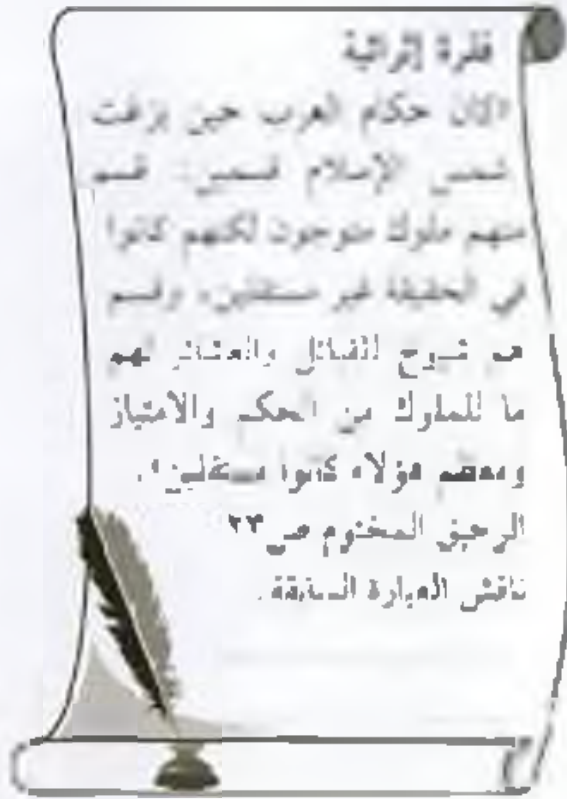 فقرة إثرائية
«كان حكام العرب حين بزغت
شمس الإسلام قسمين: قسم
منهم ملوك متوجون لكنهم كانوا
في الحقيقة غير مستقلين، وقسم
هم شيوخ القبائل والعشائر لهم
ما للملوك من الحكم والامتياز
ومعظم هؤلاء كانوا مستقلين».
الرحيق المختوم ص٢٣
ناقش العبارة السابقة.